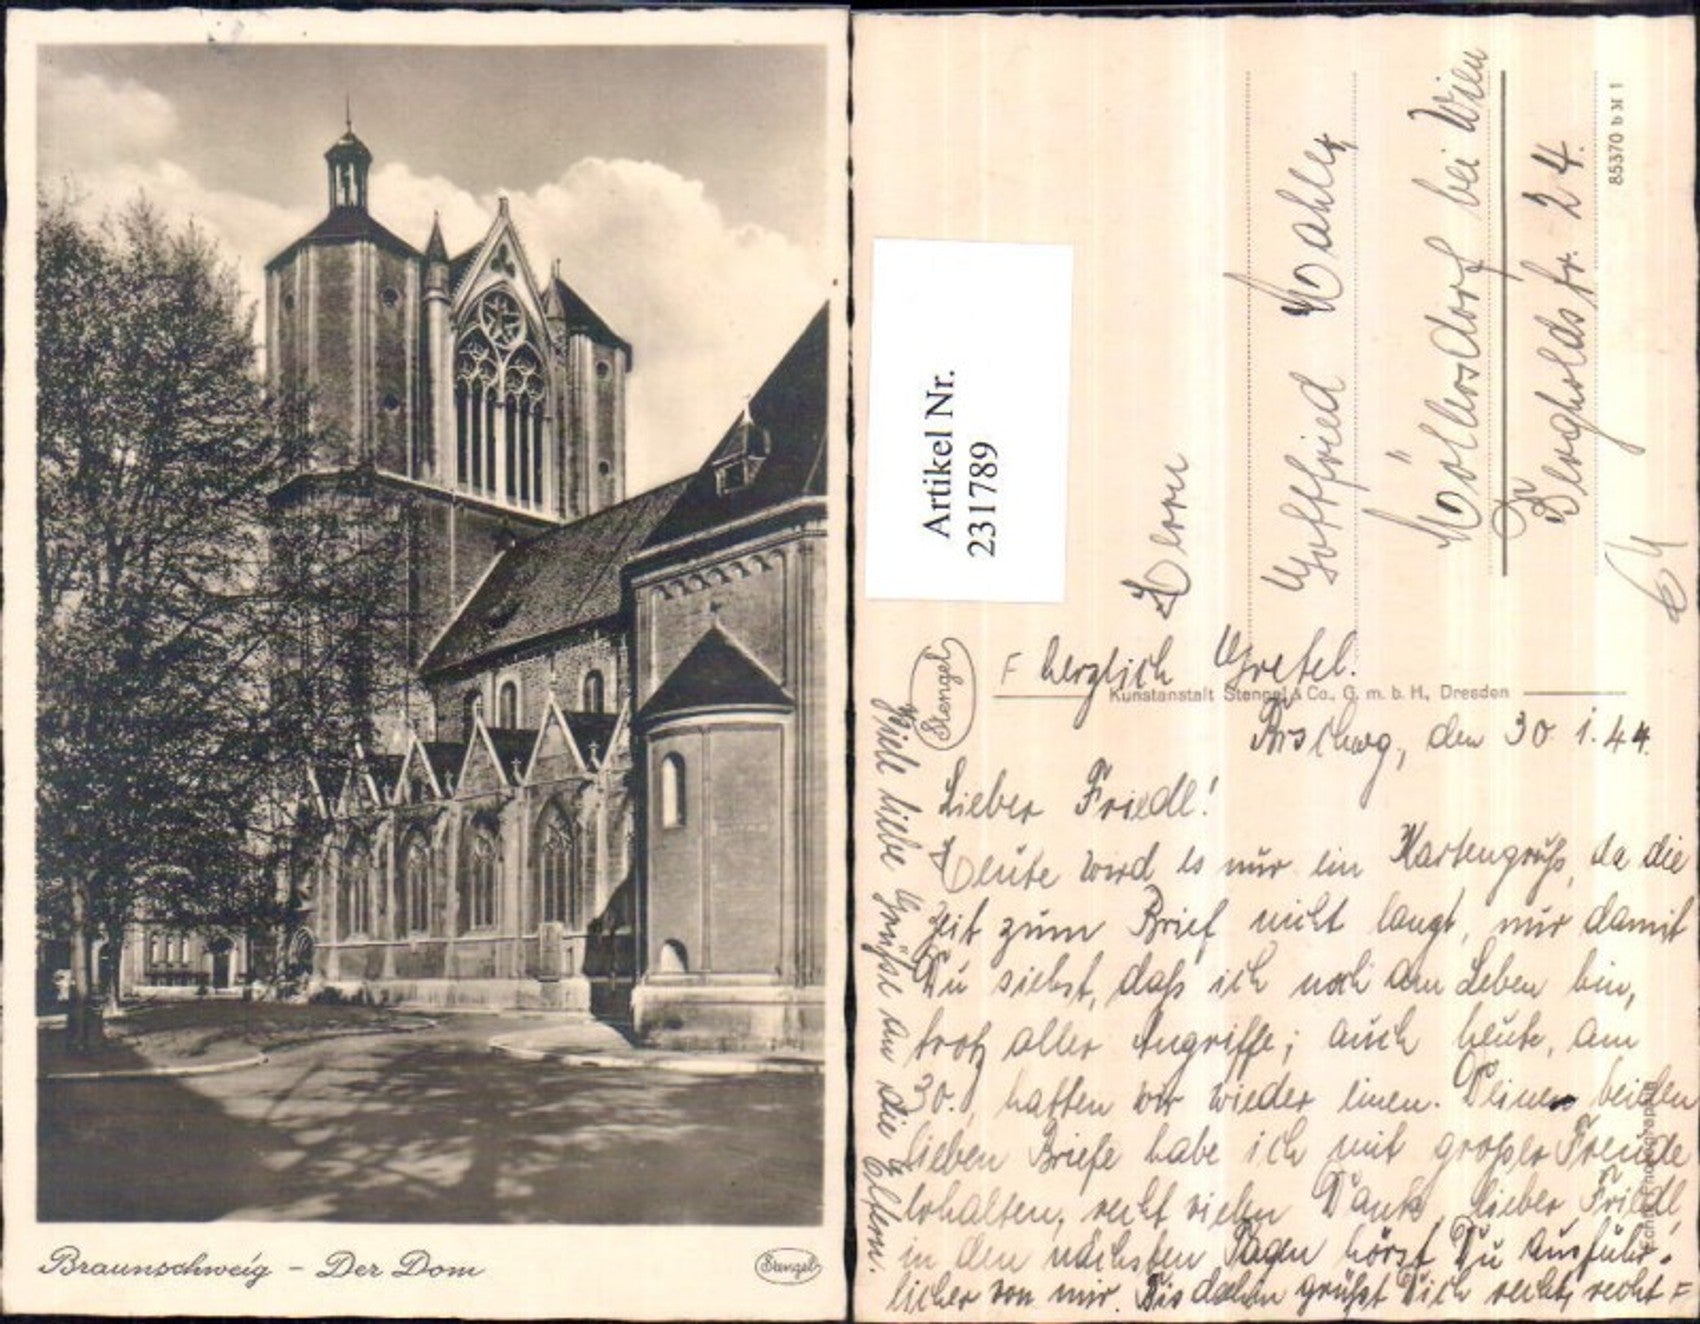 Braunschweig - Der Dom
Stengel
Artikel Nr.
231789
Herrn
Gottfried Mahler
Möllersdorf bei Wien
Bergholdstr. 24.
85370 b M 1
Stengel
= herzlich Gretel.
Kunstanstalt Stengel & Co., G. m. b. H., Dresden
Brschwg, den 30 1. 44.
Lieber Friedl!
Heute wird es nur ein Kartengruß, da die
Zeit zum Brief nicht langt, nur damit
Du siehst, daß ich noch am Leben bin,
trotz aller Angriffe; auch heute, am
30., hatten wir wieder einen. Deine beiden
lieben Briefe habe ich mit großer Freude
erhalten, recht vielen Dank, lieber Friedl,
in den nächsten Tagen hörst Du ausführ-
licher von mir. Bis dahin grüßt Dich recht, recht =
Viele liebe Grüße an die Eltern.